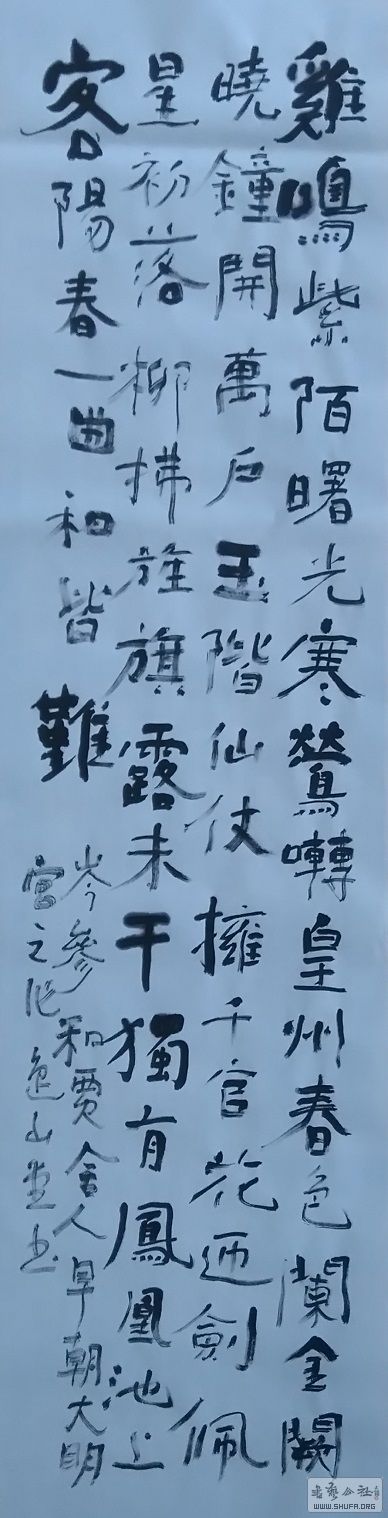 雞鳴紫陌曙光寒鶯囀皇州春色闌金闕
曉鐘開萬戶玉階仙仗擁千官花迎劍佩
星初落柳拂旌旗露未干獨有鳳凰池上
客陽春一曲和皆難
岑參和賈舍人早朝大明
宮之作 山 書
WWW.SHUFA.ORG